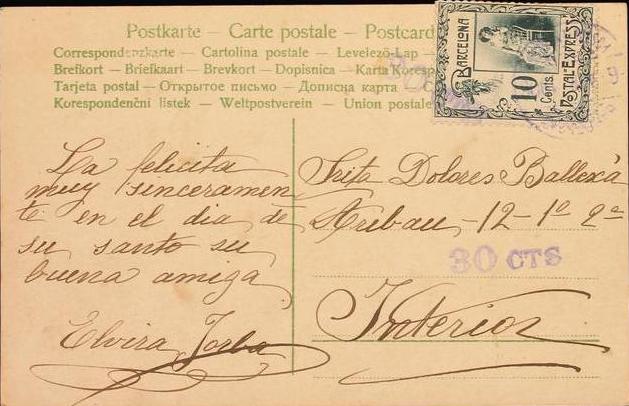 Postkarte — Carte postale — Postcard
Correspondenzkarte — Cartolina postale — Levelező-Lap
Brefkort — Briefkaart — Brevkort — Dopisnica — Karta Koresp
Tarjeta postal — Открытое письмо — Дописна карта
Korespondenční listek — Weltpostverein — Union postale
BARCELONA
10
Cents.
POSTAL EXPRESS
La felicita
muy sinceramen
te en el dia de
su santo su
buena amiga
Elvira Jorba
Srita Dolores Ballexà
Aribau -12-1º 2ª
30 CTS
Interior